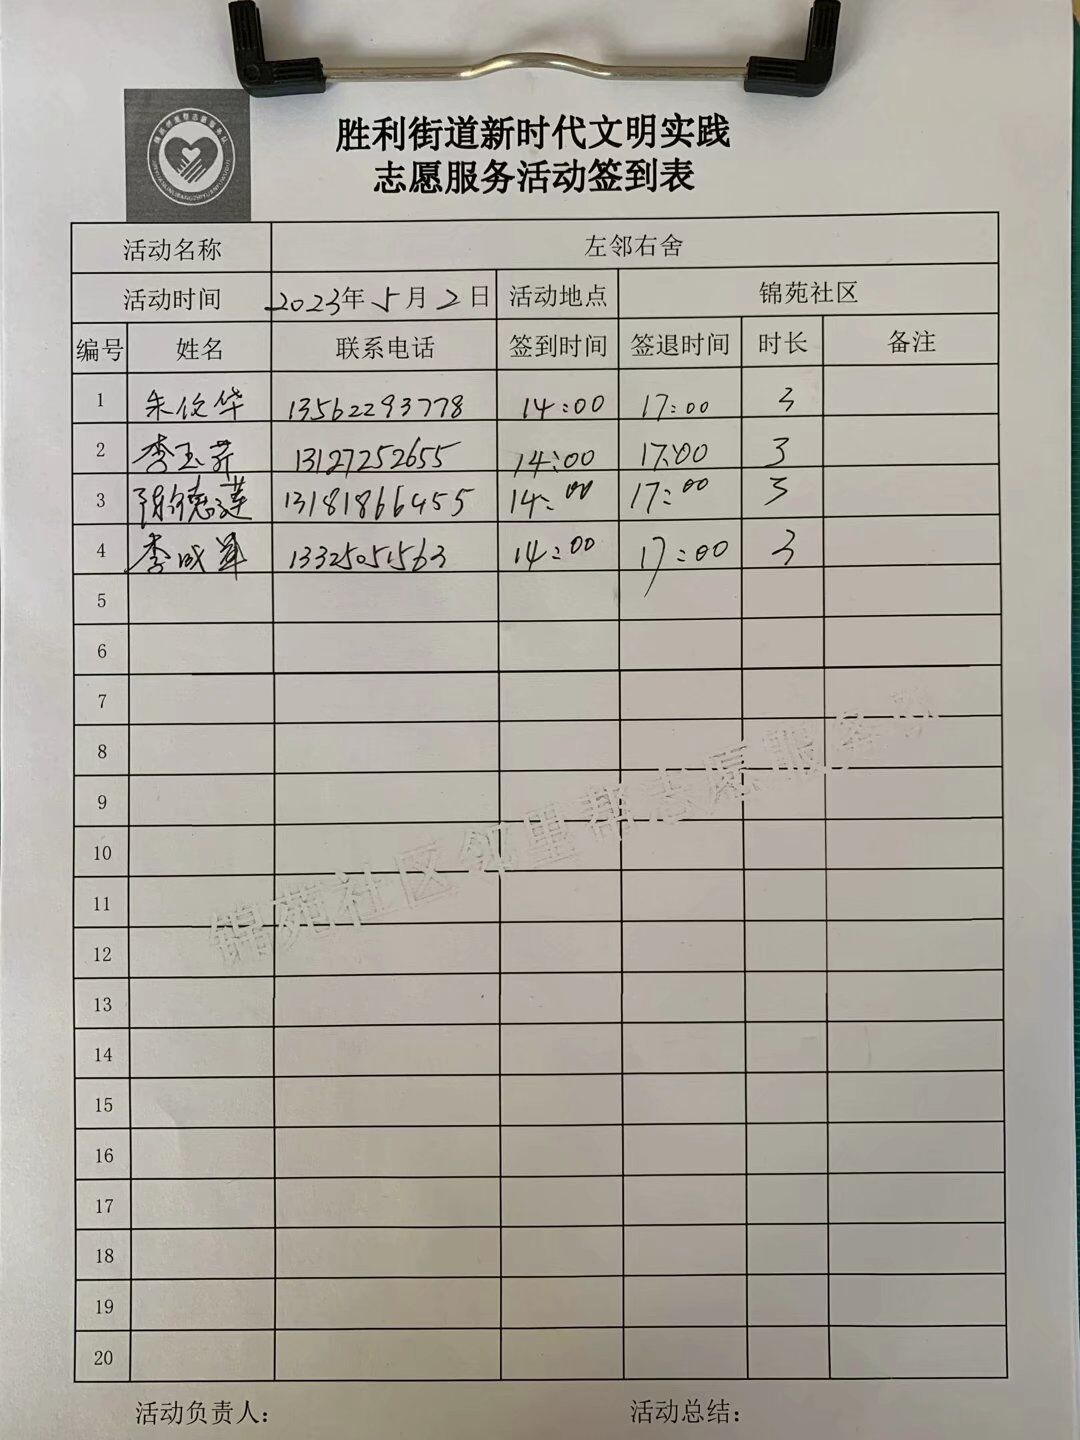 胜利街道新时代文明实践
志愿服务活动签到表
活动名称 左邻右舍
活动时间 2023年5月2日 活动地点 锦苑社区
编号 姓名 联系电话 签到时间 签退时间 时长 备注
1 朱伦华 13562293778 14:00 17:00 3
2 李玉芹 13127252655 14:00 17:00 3
3 陈德莲 13181866455 14:00 17:00 3
4 李成军 13325051563 14:00 17:00 3
5
6
7
8
9
10
11
12
13
14
15
16
17
18
19
20
锦苑社区邻里帮志愿服务队
活动负责人： 活动总结：